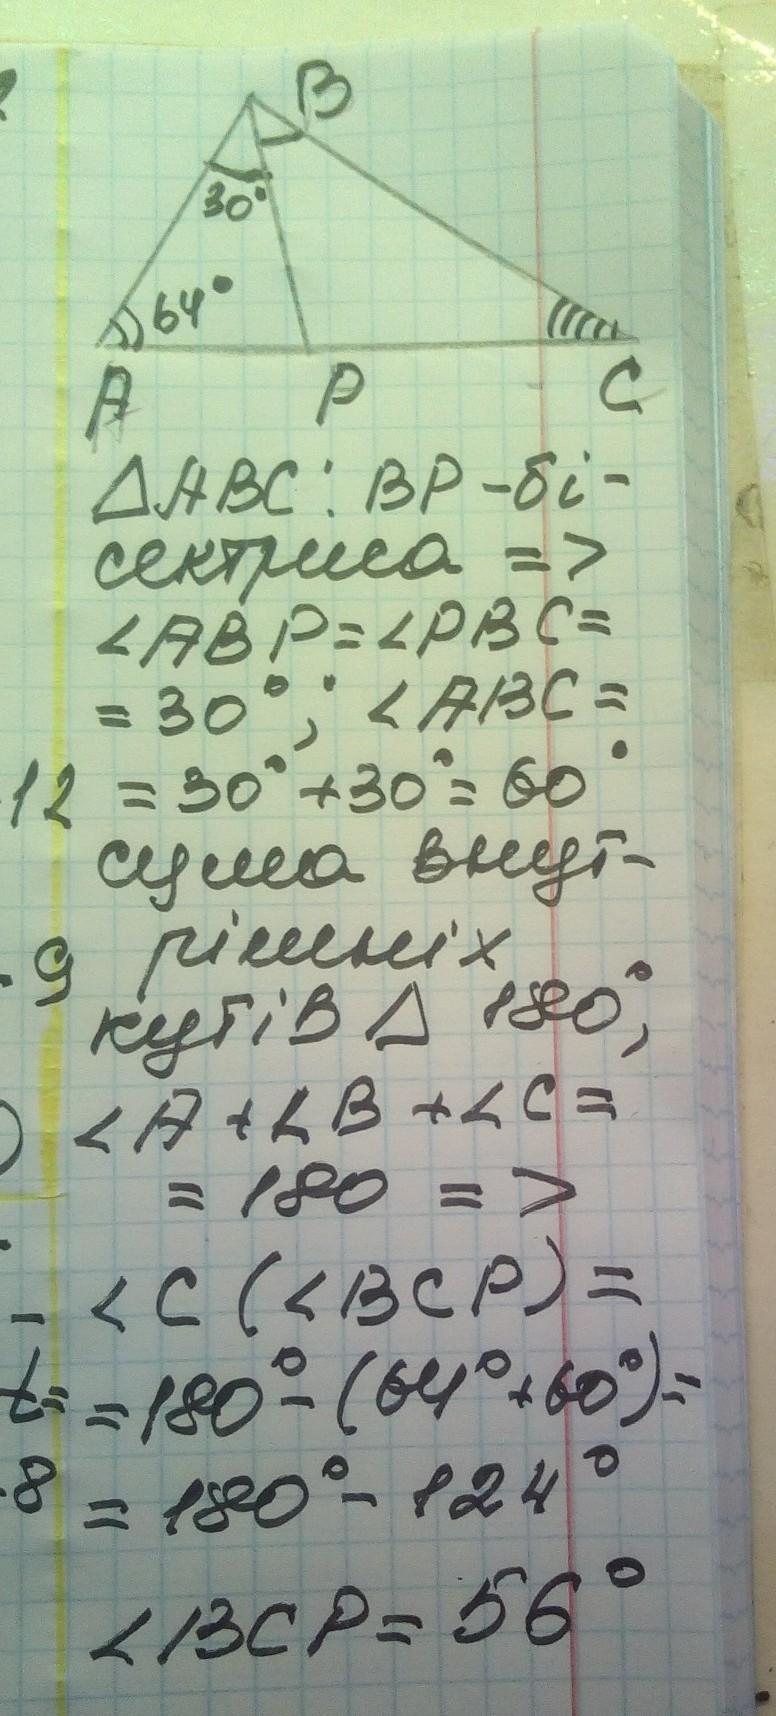 B
30°
64°
A P C
△ABC: BP-бі-
сектриса =>
∠ABP=∠PBC=
=30°; ∠ABC=
12 =30°+30°=60°
сума внут-
9 рішніх
кутів △ 180°,
∠A+∠B+∠C=
=180 =>
- ∠C(∠BCP)=
t= =180°-(64°+60°)=
.8 =180°-124°
∠BCP=56°